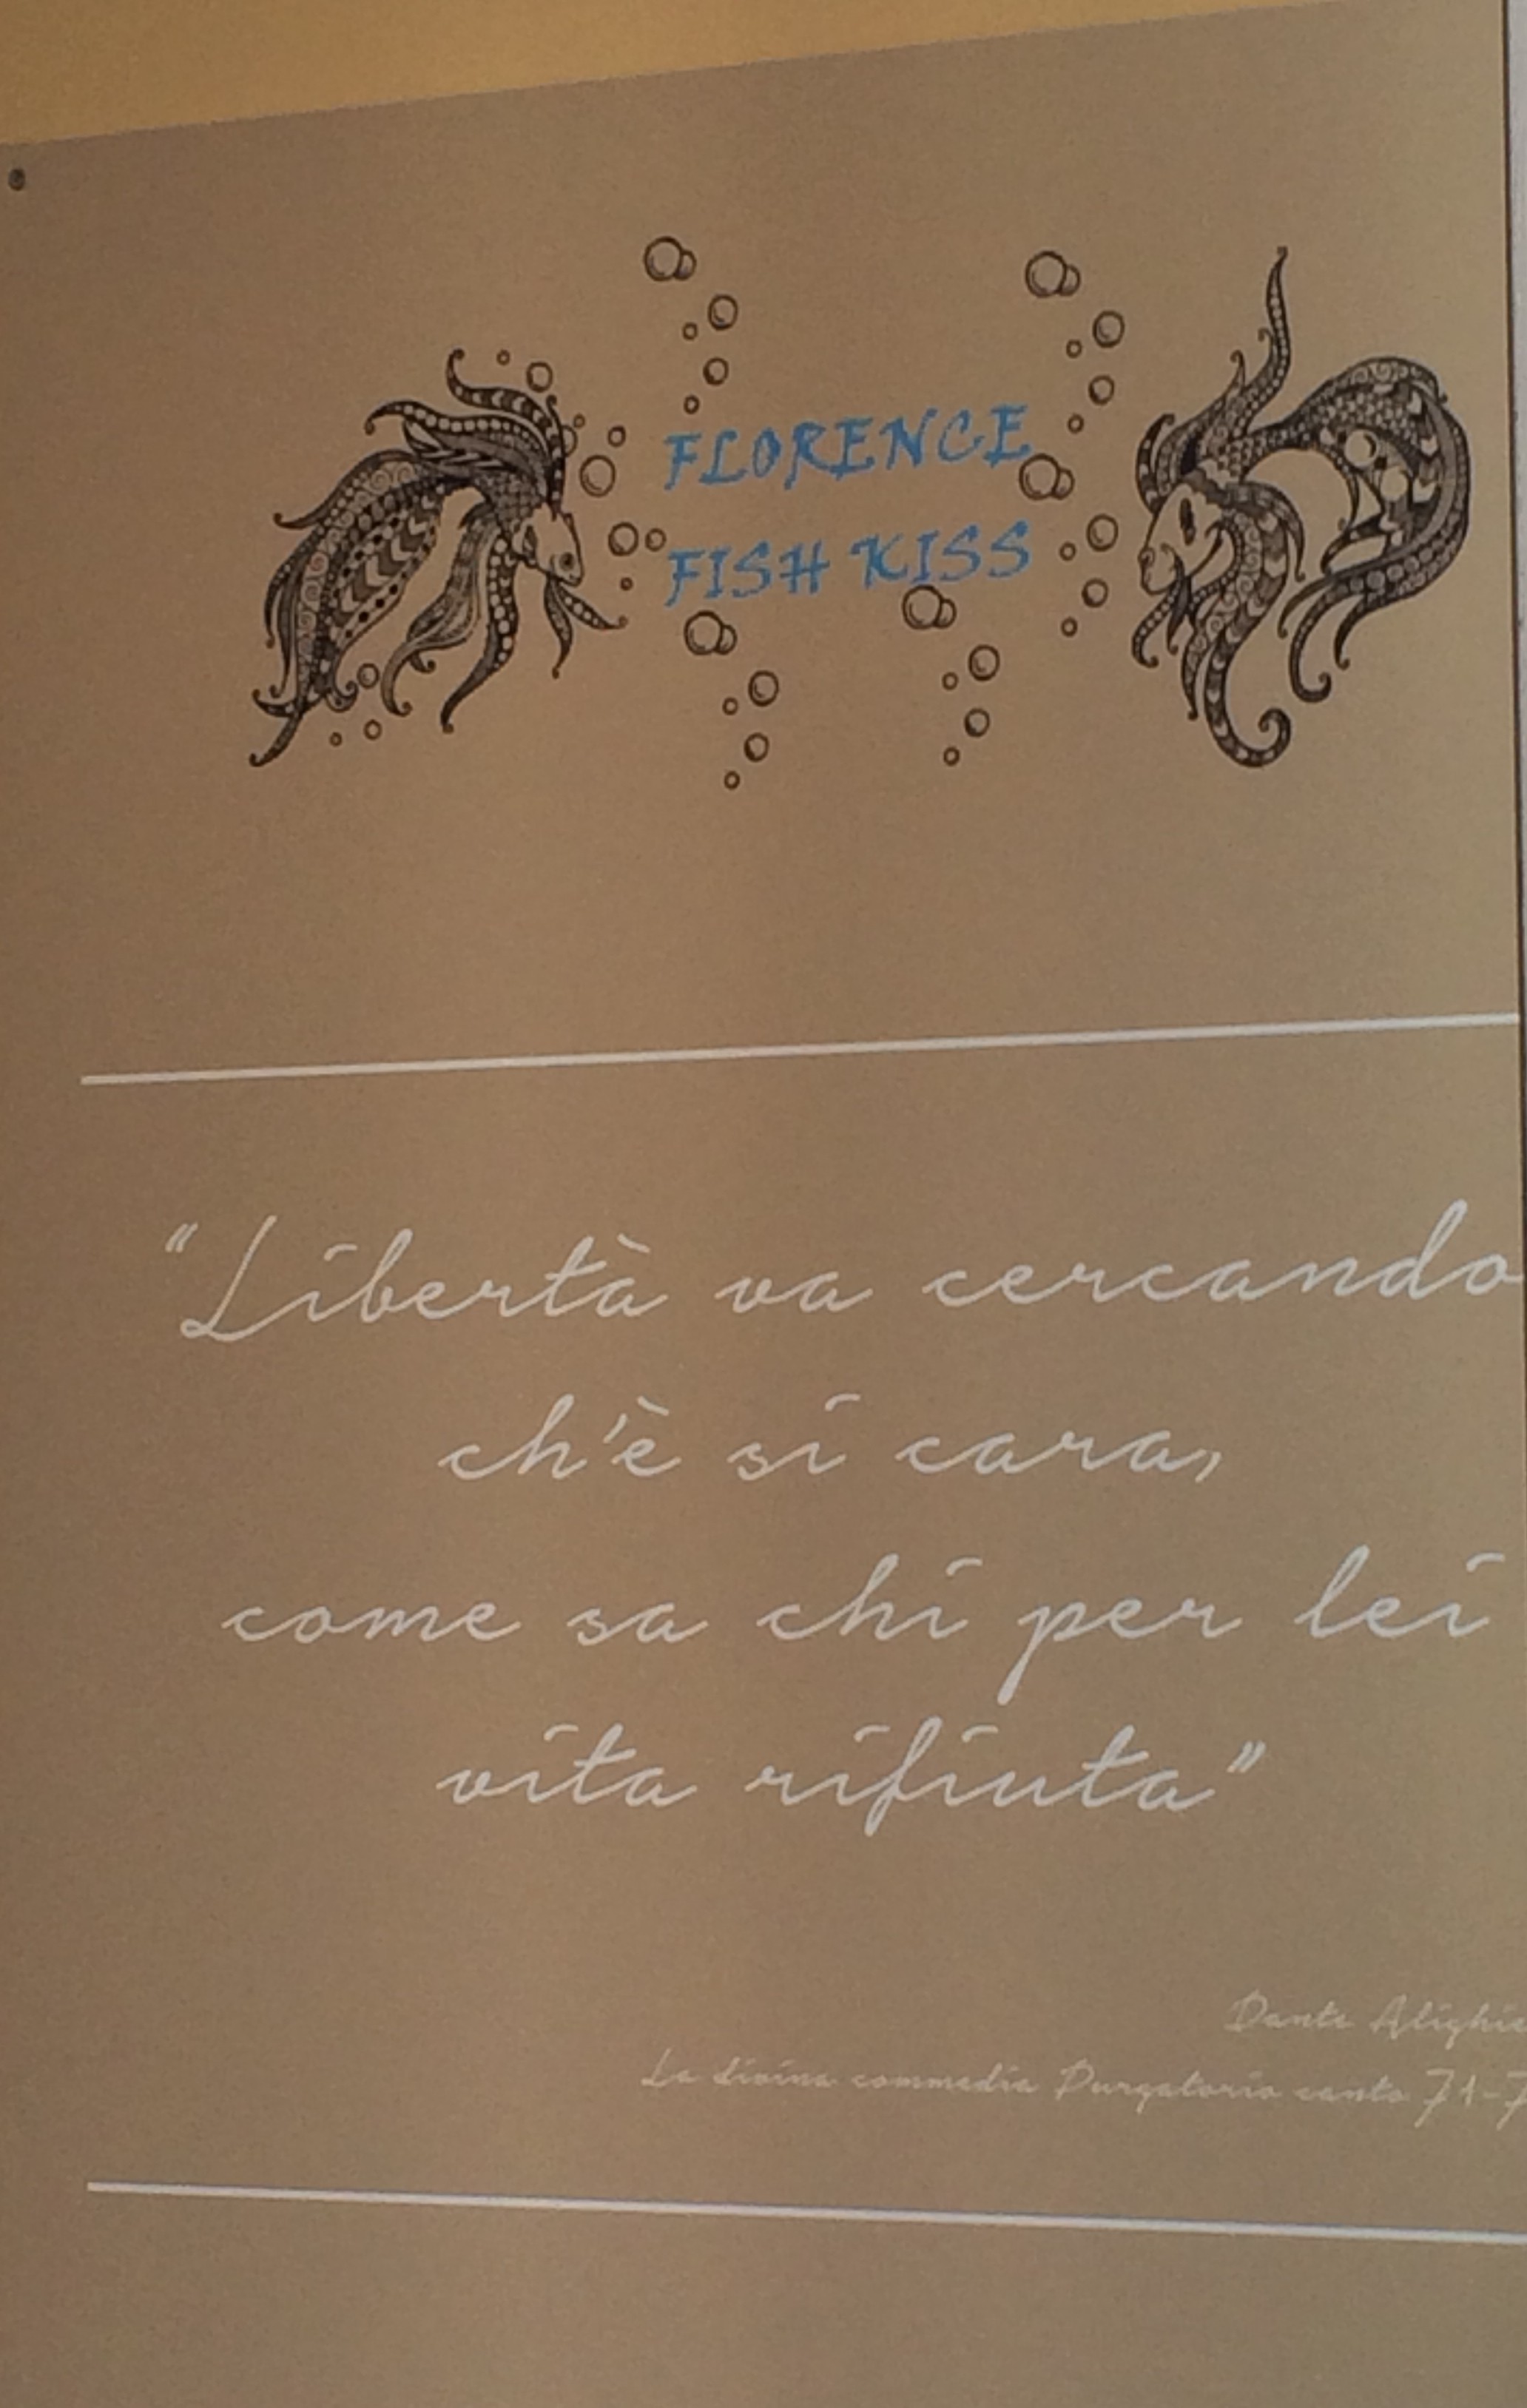 FLORENCE
FISH KISS
"Libertà va cercando
ch'è si cara,
come sa chi per lei
vita rifiuta"
Dante Alighie
La divina commedia Purgatorio canto 71-7